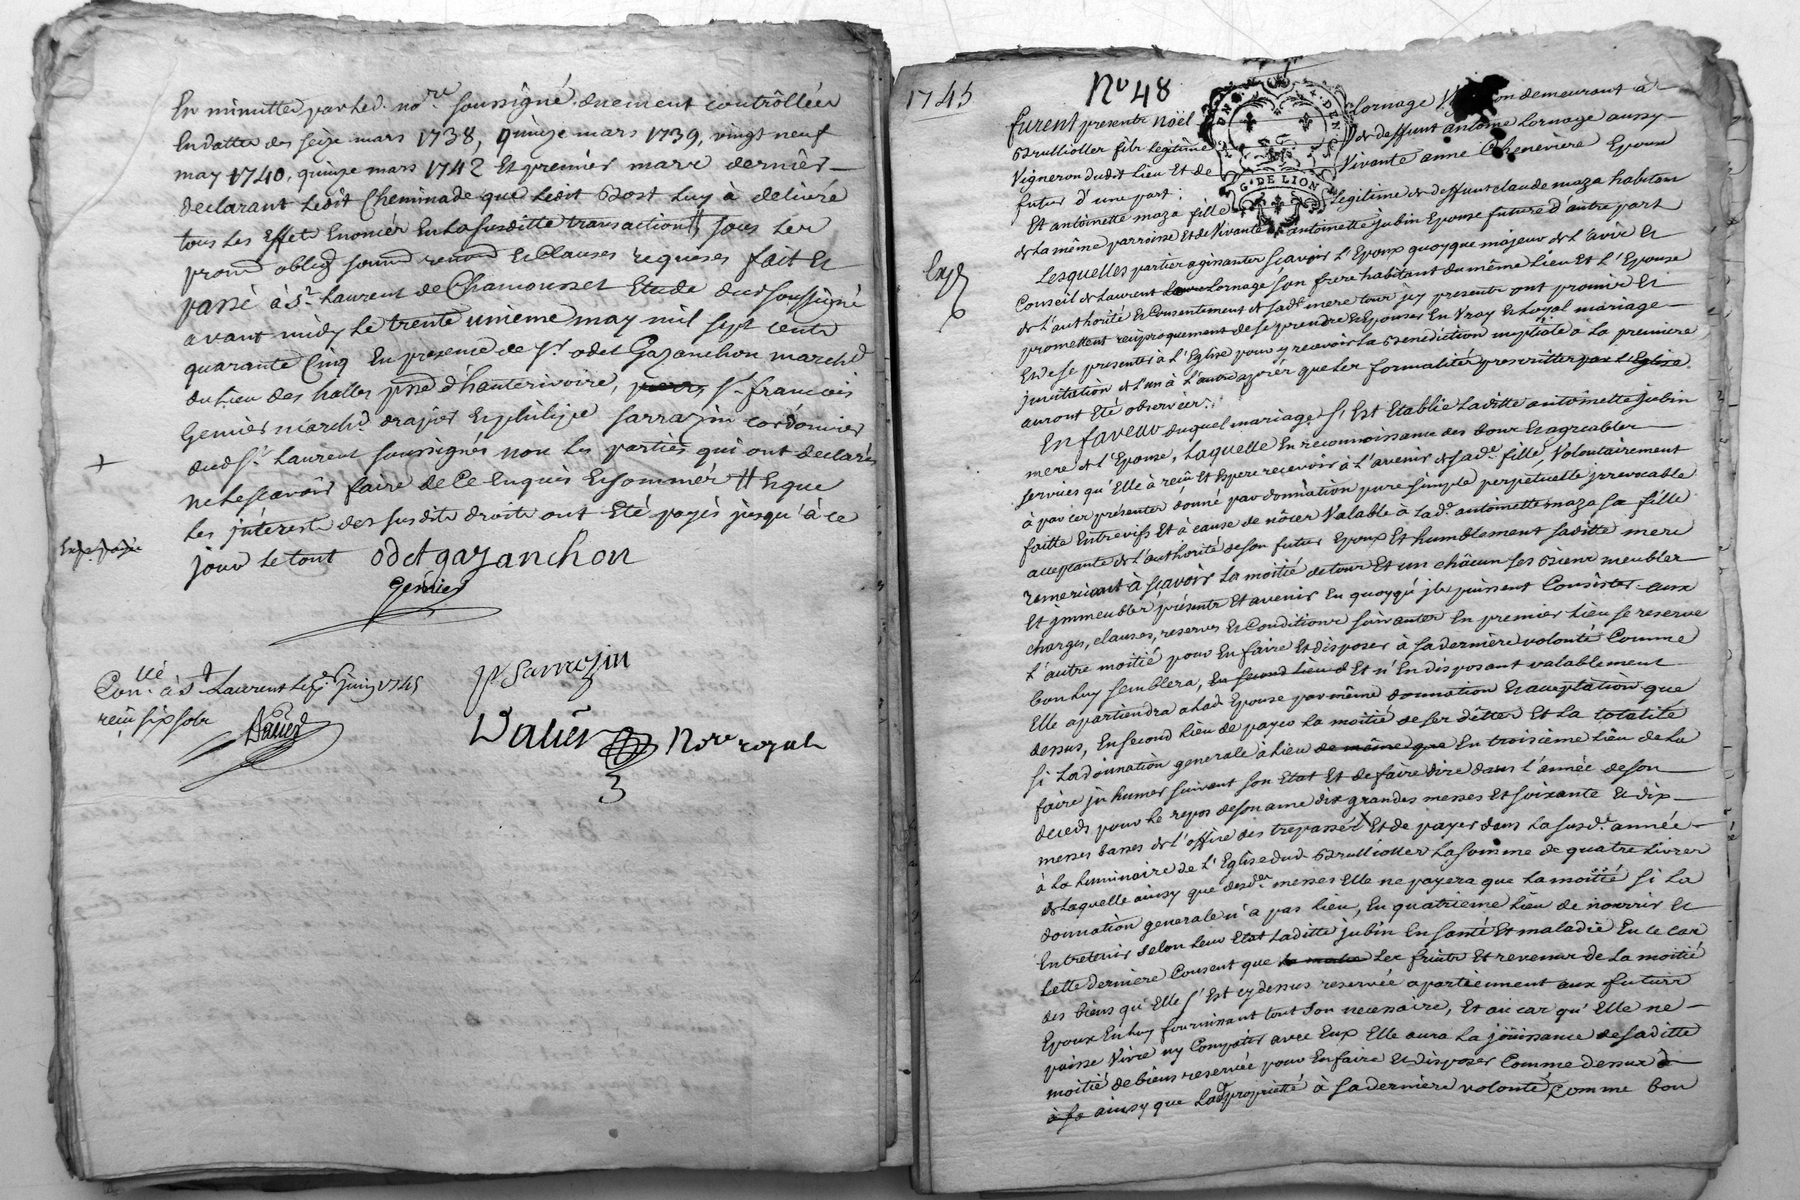 En minuttes par led. no.re soussigné duement contrôllées
En datte des seize mars 1738, quinze mars 1739, vingt neuf
may 1740, quinze mars 1742 Et premier mars dernier
declarant Ledit Cheminade que Ledit Bost Luy à delivré
tous Les Effets Enoncés En la susditte transaction // sous Les
prom. oblig. soum. renon. Et Clauses requises fait Et
passé à St. Laurent de Chamousset Etude dud. soussigné
avant midy Le trente unieme may mil sept cents
quarante Cinq En presence de Sr. odet Gazanchon march.d
du Lieu des halles psse. d'hauterivoire, Sr. françois
Genier march.d drapier Et philipe sarrazin cordonnier
dud. St. Laurent soussignés non Les parties qui ont declarés
ne Le scavoir faire de Ce Enquis Et sommés // Et que
Les interests des susdits droits ont Eté payés jusqu'à ce
jour Le tout odet gazanchon
Genier
Con.llé à St. Laurent Le juin 1745
reçu six sols
Dalier
p Sarrazin
Dalier No.re royal
1745
No 48
G. DE LION
Exp.
furent presents noël Lornage demeurant à
Brullioller fils Legitime de deffunt antoine Lornage aussy
Vigneron dudit Lieu Et de Vivante anne Chenevière Epoux
futur d'une part;
Et antoinette maza fille Legitime de deffunt claude maza habitan
de La même parroisse Et de Vivante antoinette jubin Epouse future d'autre part
Lesquelles parties agissantes scavoir L'Epoux quoyque majeur de L'avis Et
Conseil de Laurent Lornage son frere habitant du même Lieu Et L'Epouse
de L'authorité Et Consentement de sad. mere tous icy presents ont promis Et
promettent reciproquement de se prendre Et Epouser En Vray Et Loyal mariage
Et de se presenter à L'Eglise pour y recevoir La Benediction nuptiale à La premiere
invitation de L'un à L'autre après que Les formalités prescrittes par L'Eglise
auront Eté observées.
En faveur duquel mariage s'Est Etablie Laditte antoinette jubin
mere de L'Epouse, Laquelle En reconnoissance des doux Et agreables
services qu'Elle à reçu Et Espere recevoir à L'avenir de sad.e fille, Volontairement
à par ces presentes donné par donnation pure simple perpetuelle irrevocable
faitte Entrevifs Et à cause de nôces Valable à Lad.e antoinette maza sa fille
acceptante de L'authorité de son futur Epoux Et humblement saditte mere
remerciant à scavoir La moitié de tous Et un châcun ses Biens meubles
Et immeubles présents Et avenir En quoyqu'ils puissent Consister aux
charges, clauses, reserves Et Conditions suivantes En premier Lieu se reserve
L'autre moitié pour En faire Et disposer à sa dernière volonté Comme
bon Luy semblera, Et n'En disposant valablement
Elle apartiendra à Lad. Epouse par même donnation Et acceptation que
dessus, En second Lieu de payer La moitié de ses dêttes Et La totalité
si La donnation generale à Lieu En troisieme Lieu de La
faire inhumer suivant son Etat Et de faire dire dans L'année de son
deceds pour Le repos de son ame dix grandes messes Et soixante Et dix
messes basses de L'office des trepassés Et de payer dans La susd.e année
à La Luminaire de L'Eglise dud. Brullioller La somme de quatre Livres
de Laquelle ainsy que desd.es messes Elle ne payera que La moitié si La
donnation generale n'a pas Lieu, En quatrieme Lieu de nourrir Et
Entretenir selon Leur Etat Laditte jubin En santé Et maladie En ce cas
Cette derniere Consent que Les fruits Et revenus de La moitié
des biens qu'Elle s'Est cy dessus reservée apartiennent aux futurs
Epoux En Luy fournissant tout son necessaire, Et au cas qu'Elle ne
puisse Vivre ny Compatir avec Eux Elle aura La joüissance de saditte
moitié de biens reservée pour En faire Et disposer Comme dessus
ainsy que Lad. proprieté à sa dernière volonté Comme bon